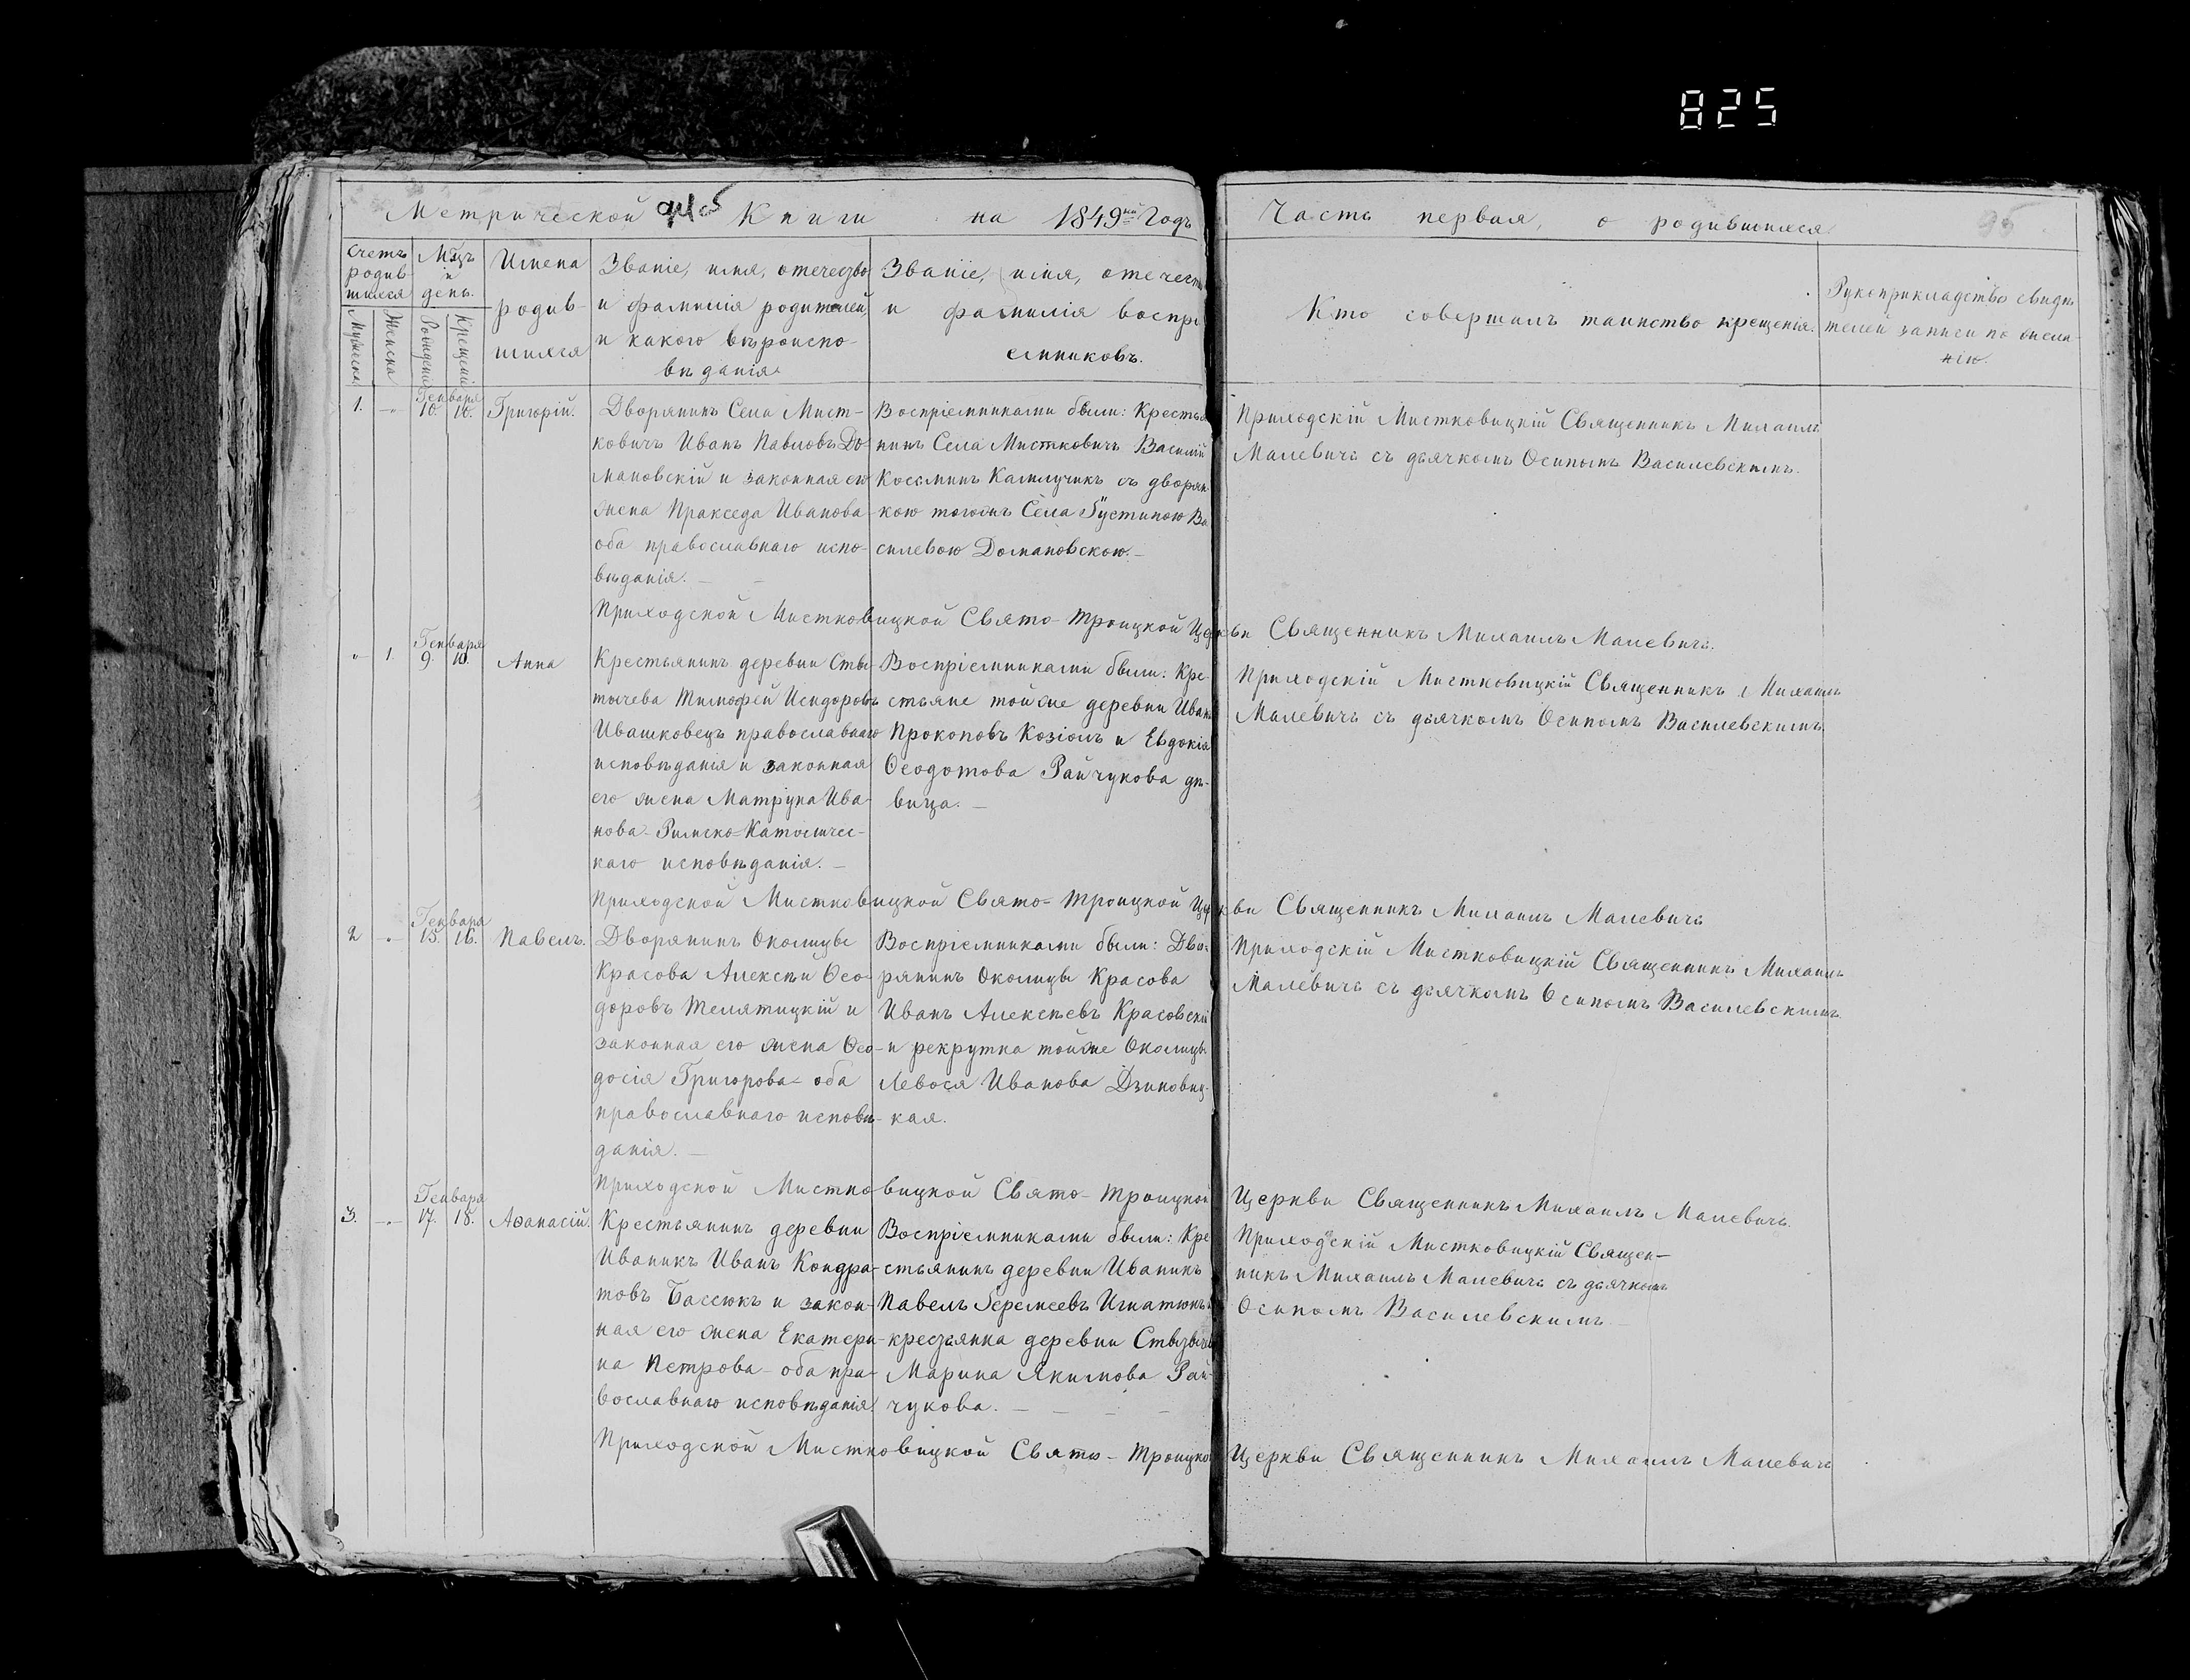 825
Метрической Книги на 1849й Годъ
Часть первая, о родившихся
95
Счетъ родив-шихся
Мужеска
Женска
Мцъ и день.
Рожденія
Крещенія
Имена родив-шихся
Званіе, имя, отечество
и фамилія родителей,
и какого вѣроиспо-
вѣданія
Званіе, имя, отечест
и фамилія воспрі
емниковъ.
Кто совершалъ таинство крещенія.
Рукоприкладство свидѣ
телей записи по жела-
нію.
1. Генваря 10. 10. Григорій.
Дворянинъ Села Мист-
ковичъ Иванъ Павловъ До-
мановскій и законная его
жена Пракседа Иванова
оба православнаго испо-
вѣданія. —
Воспріемниками были: Крестья
нинъ Села Мистковичъ Василій
Косминъ Камлучикъ съ дворян
кою тогожъ Села Ва
силевою Домановскою. —
Приходскій Мистковицкій Священникъ Михаилъ
Малевичъ съ дьячкомъ Осипомъ Василевскимъ.
Приходской Мистковицкой Свято-Троицкой Церкви Священникъ Михаилъ Малевичъ.
1. Генваря 9. 10. Анна
Крестьянинъ деревни Сты
тычева Тимофей Исидоровъ
Ивашковецъ православнаго
исповѣданія и законная
его жена Матруна Ива-
нова Римско-Католичес-
каго исповѣданія. —
Воспріемниками были: Кре-
стьяне тойже деревни Иванъ
Прокоповъ Козіолъ и Евдокія
Ѳеодотова Райчукова дѣ-
вица. —
Приходскій Мистковицкій Священникъ Михаилъ
Малевичъ съ дьячкомъ Осипомъ Василевскимъ
Приходской Мистковицкой Свято-Троицкой Церкви Священникъ Михаилъ Малевичъ
2 Генвара 15. 16. Павелъ.
Дворянинъ Околицы
Красова Алексѣй Ѳео-
доровъ Телятицкій и
законная его жена Ѳео-
досія Григорова оба
православнаго исповѣ-
данія. —
Воспріемниками были: Дво-
рянинъ Околицы Красова
Иванъ Алексѣевъ Красовскій
и рекрутка тойже Околицы
Левося Иванова Дзиковиц-
кая.
Приходскій Мистковицкій Священникъ Михаилъ
Малевичъ съ дьячкомъ Осипомъ Василевскимъ
Приходской Мистковицкой Свято-Троицкой Церкви Священникъ Михаилъ Малевичъ.
3. Генваря 17. 18. Аѳанасій.
Крестьянинъ деревни
Иваникъ Иванъ Кондра-
товъ Бассюкъ и закон-
ная его жена Екатери-
на Петрова оба пра-
вославнаго исповѣданія.
Воспріемниками были: Кре
стьянинъ деревни Иваникъ
Павелъ Еремеевъ Игнатюкъ
крестьянка деревни
Марина Якимова Рай-
чукова. —
Приходскій Мистковицкій Священ-
никъ Михаилъ Малевичъ съ дьячкомъ
Осипомъ Василевскимъ
Приходской Мистковицкой Свято-Троицкой Церкви Священникъ Михаилъ Малевичъ